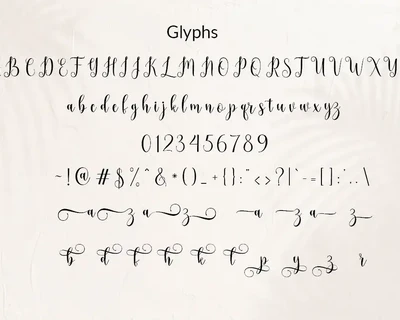 Glyphs
A B C D E F G H I J K L M N O P Q R S T U V W X Y
a b c d e f g h i j k l m n o p q r s t u v w x y z
0 1 2 3 4 5 6 7 8 9
~ ! @ # $ % ^ & * ( ) _ + { } : " < > ? | ` - = [ ] ; ' , . \
a z a z a z a z
b d f h k t p y z r